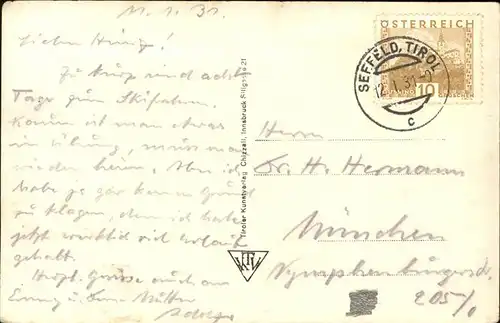 11.1.31.
Lieber Heinz!
Zu kurz sind acht
Tage zum Skifahren.
Kaum ist man etwas
in Übung, muss man
wieder heim. Aber ich
habe ja gar keinen Grund
zu klagen, denn ich habe
jetzt wirklich viel Urlaub
gehabt.
Herzl. Grüsse auch an
Mutter
Tiroler Kunstverlag Chizzali, Innsbruck Sillgasse 21
TKV
ÖSTERREICH
10
SEEFELD, TIROL
c
Herrn
Dr. H. Hermann
München
Nymphenburgerstr.
205/0